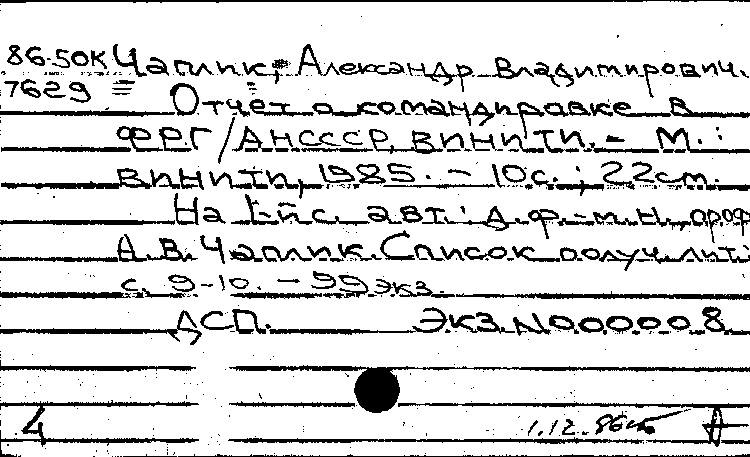 86-50К Чаплик, Александр Владимирович.
7629 Отчет о командировке в
ФРГ/АНСССР, ВИНИТИ. - М.:
ВИНИТИ, 1985. - 10с.; 22см.
На 1-й с. авт.: д.ф.-м.н., проф
А.В. Чаплик. Список получ. лит.:
с. 9-10. - 99 экз.
ДСП. Экз. N000008
4 1.12.86